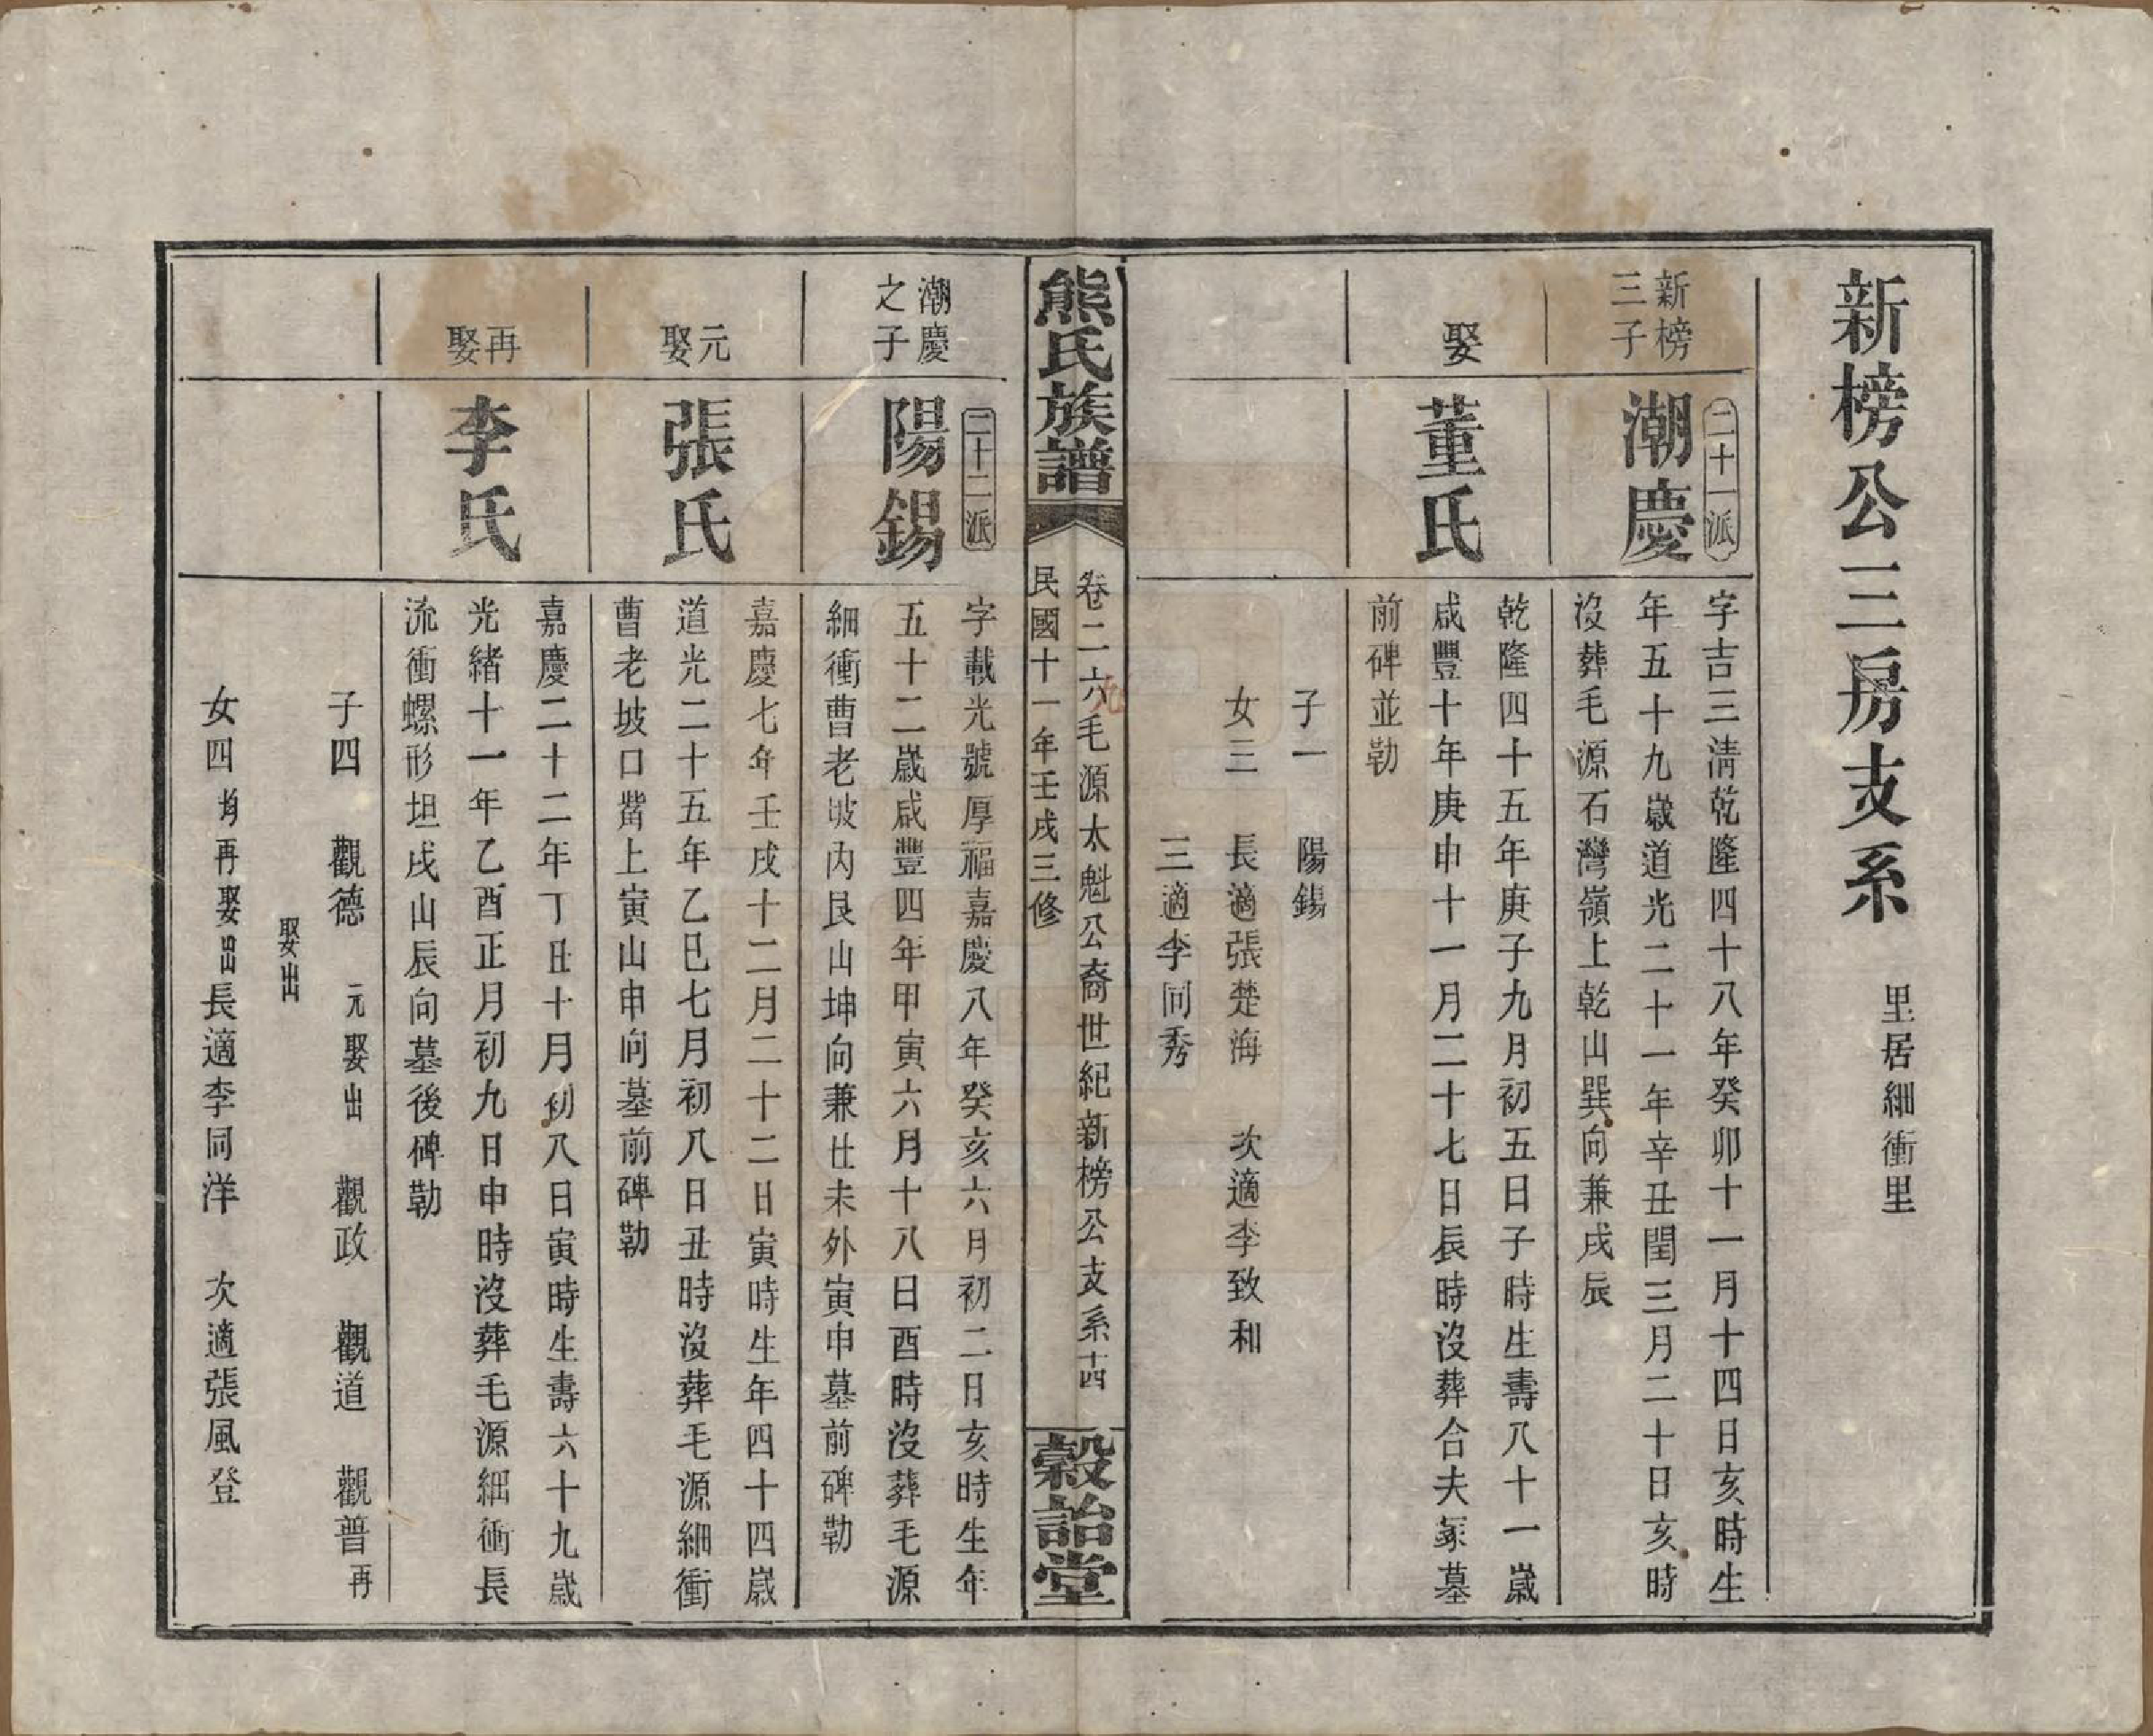 新榜公三房支系 里居細衝里
新榜
三子
二十一派
潮慶
字吉三清乾隆四十八年癸卯十一月十四日亥時生
年五十九歲道光二十一年辛丑閏三月二十日亥時
沒葬毛源石灣嶺上乾山巽向兼戌辰
娶
董氏
乾隆四十五年庚子九月初五日子時生壽八十一歲
咸豐十年庚申十一月二十七日辰時沒葬合夫冢墓
前碑並勒
子一 陽錫
女三 長適張楚海 次適李致和
三適李同秀
熊氏族譜
卷二六毛源太魁公裔世紀新榜公支系十四
九
民國十一年壬戌三修
穀詒堂
潮慶
之子
二十二派
陽錫
字載光號厚福嘉慶八年癸亥六月初二日亥時生年
五十二歲咸豐四年甲寅六月十八日酉時沒葬毛源
細衝曹老坡內艮山坤向兼丑未外寅申墓前碑勒
元
娶
張氏
嘉慶七年壬戌十二月二十二日寅時生年四十四歲
道光二十五年乙巳七月初八日丑時沒葬毛源細衝
曹老坡口嵤上寅山申向墓前碑勒
再
娶
李氏
嘉慶二十二年丁丑十月初八日寅時生壽六十九歲
光緒十一年乙酉正月初九日申時沒葬毛源細衝長
流衝螺形坦戌山辰向墓後碑勒
子四 觀德 元娶出 觀政 觀道 觀普 再
娶出
女四 肖再娶出 長適李同洋 次適張風登